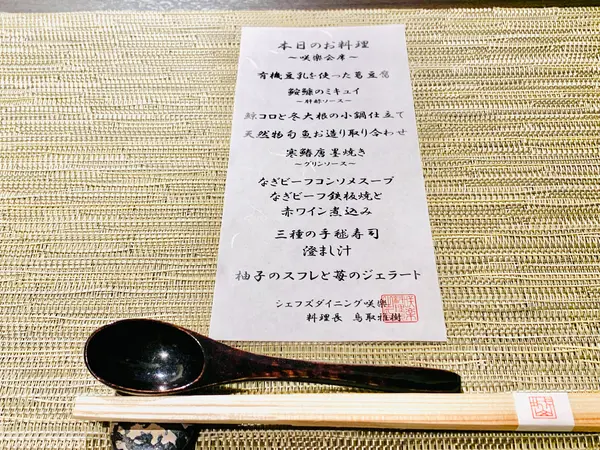 本日のお料理
〜咲樂会席〜
有機豆乳を使った葛豆腐
鮟鱇のミキュイ
〜肝酢ソース〜
鯨コロと冬大根の小鍋仕立て
天然物旬魚お造り取り合わせ
寒鰆唐墨焼き
〜グリンソース〜
なぎビーフコンソメスープ
なぎビーフ鉄板焼と
赤ワイン煮込み
三種の手毬寿司
澄まし汁
柚子のスフレと苺のジェラート
シェフズダイニング咲樂
料理長 鳥取雅樹